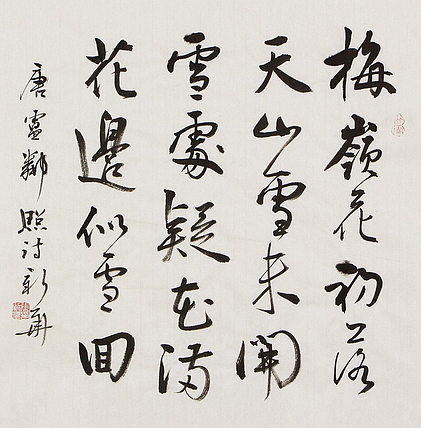 梅嶺花初落
天山雪未開
雪處疑花滿
花邊似雪回
唐盧鄰照诗新